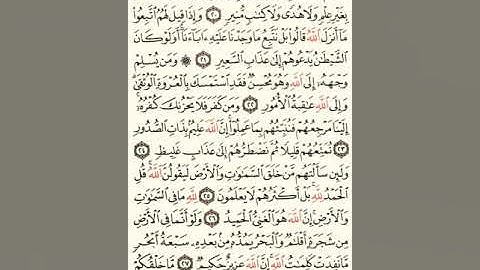 بِغَيْرِ عِلْمٍ وَلَا هُدًى وَلَا كِتَٰبٍ مُّنِيرٍ ٢٠ وَإِذَا قِيلَ لَهُمُ ٱتَّبِعُوا۟
مَآ أَنزَلَ ٱللَّهُ قَالُوا۟ بَلْ نَتَّبِعُ مَا وَجَدْنَا عَلَيْهِ ءَابَآءَنَآ أَوَلَوْ كَانَ
ٱلشَّيْطَٰنُ يَدْعُوهُمْ إِلَىٰ عَذَابِ ٱلسَّعِيرِ ٢١ ۞ وَمَن يُسْلِمْ
وَجْهَهُۥٓ إِلَى ٱللَّهِ وَهُوَ مُحْسِنٌ فَقَدِ ٱسْتَمْسَكَ بِٱلْعُرْوَةِ ٱلْوُثْقَىٰ
وَإِلَى ٱللَّهِ عَٰقِبَةُ ٱلْأُمُورِ ٢٢ وَمَن كَفَرَ فَلَا يَحْزُنكَ كُفْرُهُۥٓ
إِلَيْنَا مَرْجِعُهُمْ فَنُنَبِّئُهُم بِمَا عَمِلُوٓا۟ إِنَّ ٱللَّهَ عَلِيمٌۢ بِذَاتِ ٱلصُّدُورِ
٢٣ نُمَتِّعُهُمْ قَلِيلًا ثُمَّ نَضْطَرُّهُمْ إِلَىٰ عَذَابٍ غَلِيظٍ ٢٤
وَلَئِن سَأَلْتَهُم مَّنْ خَلَقَ ٱلسَّمَٰوَٰتِ وَٱلْأَرْضَ لَيَقُولُنَّ ٱللَّهُ قُلِ
ٱلْحَمْدُ لِلَّهِ بَلْ أَكْثَرُهُمْ لَا يَعْلَمُونَ ٢٥ لِلَّهِ مَا فِى ٱلسَّمَٰوَٰتِ
وَٱلْأَرْضِ إِنَّ ٱللَّهَ هُوَ ٱلْغَنِىُّ ٱلْحَمِيدُ ٢٦ وَلَوْ أَنَّمَا فِى ٱلْأَرْضِ
مِن شَجَرَةٍ أَقْلَٰمٌ وَٱلْبَحْرُ يَمُدُّهُۥ مِنۢ بَعْدِهِۦ سَبْعَةُ أَبْحُرٍ
مَّا نَفِدَتْ كَلِمَٰتُ ٱللَّهِ إِنَّ ٱللَّهَ عَزِيزٌ حَكِيمٌ ٢٧ مَّا خَلْقُكُمْ